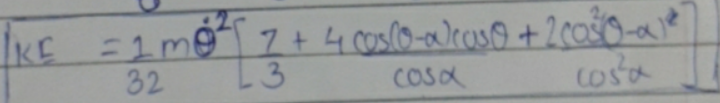 KE = 1/32 mθ̇² [7/3 + 4cos(θ-α)cosθ/cosα + 2cos²(θ-α)²/cos²α]